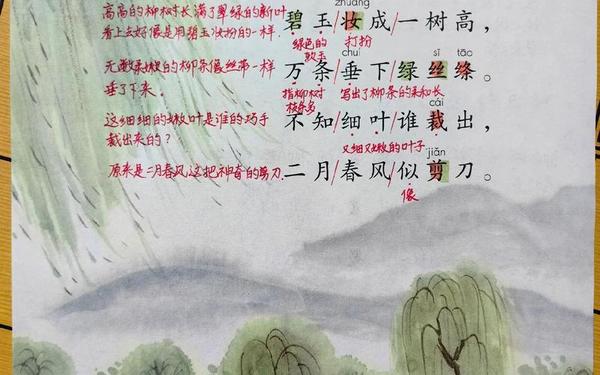 高高的柳树长满了翠绿的新叶
看上去好像是用碧玉妆扮的一样.
zhuāng
碧玉/妆成/一树高，
绿色的
软玉
打扮
无数柔嫩的柳条像丝带一样
垂了下来.
chuí sī tāo
万条/垂下/绿丝绦。
指柳树
枝条多
写出了柳条的柔和长
这细细的嫩叶是谁的巧手
裁出来的？
cái
不知/细叶/谁裁出，
又细又嫩的叶子
原来是二月春风这把神奇的剪刀.
jiǎn
二月/春风/似剪刀。
像